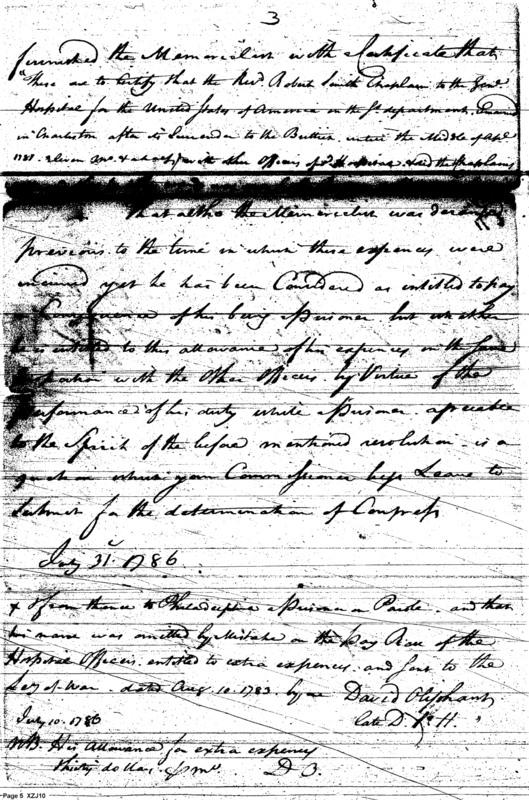 3
furnished the Memorialist with a Certificate that
"These are to Certify that the Revd. Robert Smith Chaplain to the Genl.
Hospital for the United States of America in the So. department,
in Charleston after its Surrender to the British, untill the Middle of
1781. & with other Officers of Hospital did the Chaplains
That altho the Memorialist was
previous to the time in which these expences were
incurred yet he has been Considered as entitled to pay
in Consequence of his being a Prisoner but whether
he is entitled to this allowance of his expences in the same
proportion with the Other Officers, by Virtue of the
performance of his duty while a Prisoner agreeable
to the Spirit of the before mentioned resolution is a
question which your Commissioner begs Leave to
Submit for the determination of Congress
July 31. 1786
& from thence to Philadelphia a Prisoner on Parole. and that
his name was omitted by Mistake in the Pay of the
Hospital Officers entitled to extra expences and sent to the
Secy of War dated Aug. 10. 1783. by me David Oliphant
July 10. 1786 late D.
NB. His Allowance for extra expences
Thirty dollars